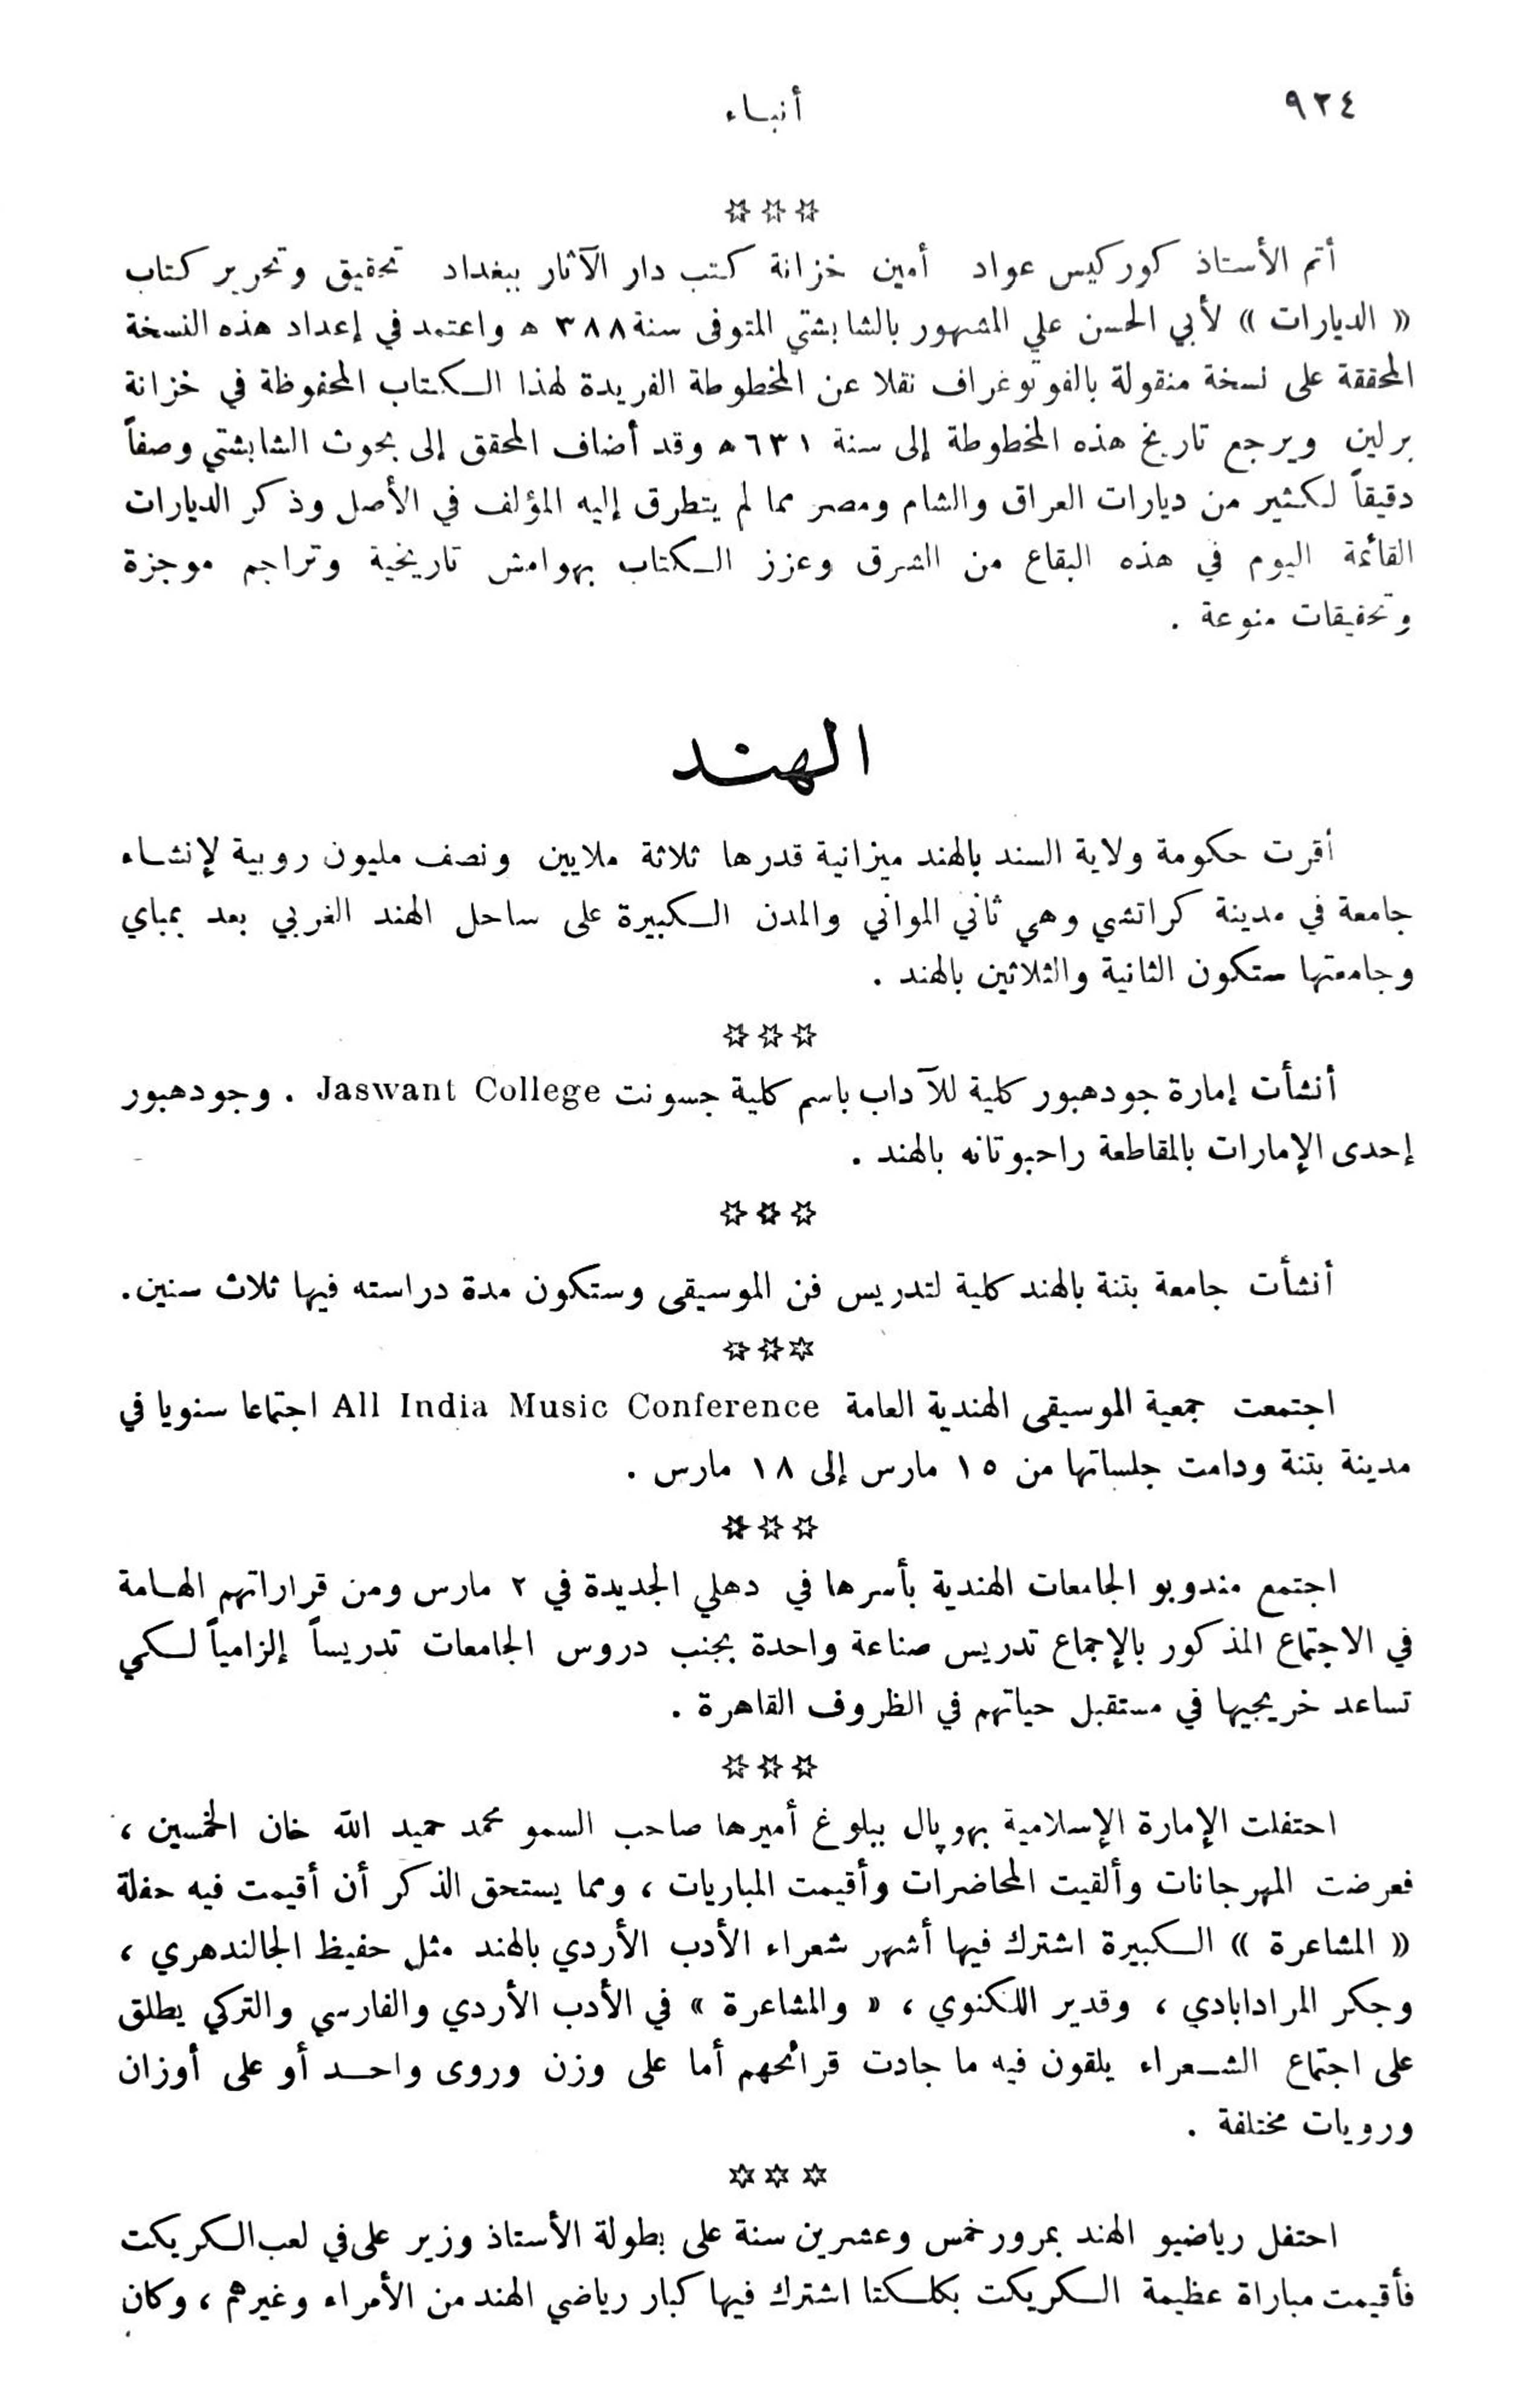 ٩٢٤
أنباء
☆☆☆
أتم الأستاذ كوركيس عواد أمين خزانة كتب دار الآثار ببغداد تحقيق وتحرير كتاب
« الديارات » لأبي الحسن علي المشهور بالشابشتي المتوفى سنة ٣٨٨ ه واعتمد في إعداد هذه النسخة
المحققة على نسخة منقولة بالفوتوغراف نقلا عن المخطوطة الفريدة لهذا الكتاب المحفوظة في خزانة
برلين ويرجع تاريخ هذه المخطوطة إلى سنة ٦٣١ ه وقد أضاف المحقق إلى بحوث الشابشتي وصفاً
دقيقاً لكثير من ديارات العراق والشام ومصر مما لم يتطرق إليه المؤلف في الأصل وذكر الديارات
القائمة اليوم في هذه البقاع من الشرق وعزز الكتاب بهوامش تاريخية وتراجم موجزة
وتحقيقات منوعة .
الهند
أقرت حكومة ولاية السند بالهند ميزانية قدرها ثلاثة ملايين ونصف مليون روبية لإنشاء
جامعة في مدينة كراتشي وهي ثاني المواني والمدن الكبيرة على ساحل الهند الغربي بعد بمباي
وجامعتها ستكون الثانية والثلاثين بالهند .
☆☆☆
أنشأت إمارة جودهبور كلية للآداب باسم كلية جسونت Jaswant College . وجودهبور
إحدى الإمارات بالمقاطعة راحبوتانه بالهند .
☆☆☆
أنشأت جامعة بتنة بالهند كلية لتدريس فن الموسيقى وستكون مدة دراسته فيها ثلاث سنين .
☆☆☆
اجتمعت جمعية الموسيقى الهندية العامة All India Music Conference اجتماعا سنويا في
مدينة بتنة ودامت جلساتها من ١٥ مارس إلى ١٨ مارس .
☆☆☆
اجتمع مندوبو الجامعات الهندية بأسرها في دهلي الجديدة في ٢ مارس ومن قراراتهم الهامة
في الاجتماع المذكور بالإجماع تدريس صناعة واحدة بجنب دروس الجامعات تدريساً إلزامياً لكي
تساعد خريجيها في مستقبل حياتهم في الظروف القاهرة .
☆☆☆
احتفلت الإمارة الإسلامية بهوپال ببلوغ أميرها صاحب السمو محمد حميد الله خان الخمسين ،
فعرضت المهرجانات وألقيت المحاضرات وأقيمت المباريات ، ومما يستحق الذكر أن أقيمت فيه حفلة
« المشاعرة » الكبيرة اشترك فيها أشهر شعراء الأدب الأردي بالهند مثل حفيظ الجالندهري ،
وجكر المرادابادي ، وقدير اللكنوي ، « والمشاعرة » في الأدب الأردي والفارسي والتركي يطلق
على اجتماع الشعراء يلقون فيه ما جادت قرائحهم أما على وزن وروى واحد أو على أوزان
ورويات مختلفة .
☆☆☆
احتفل رياضيو الهند بمرور خمس وعشرين سنة على بطولة الأستاذ وزير على في لعب الكريكت
فأقيمت مباراة عظيمة الكريكت بكلكتا اشترك فيها كبار رياضي الهند من الأمراء وغيرهم ، وكان